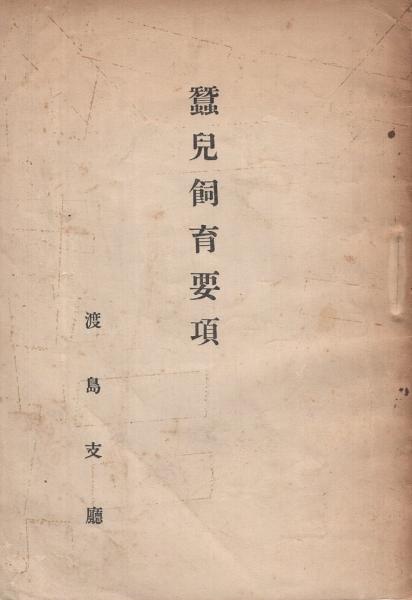 蠶兒飼育要項
渡島支廳